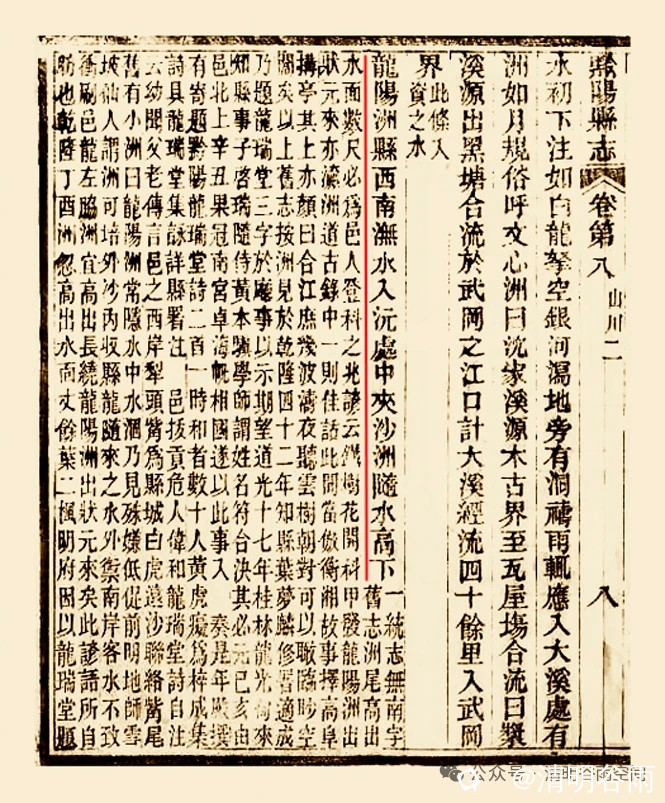 黔陽縣志 卷第八 山川二 八
水初下注如白龍拏空銀河瀉地旁有洞禱雨輒應入大溪處有
洲如月規俗呼文心洲曰沈家溪源木古界至瓦屋塲合流曰製
溪源出黑塘合流於武岡之江口計大溪經流四十餘里入武岡
界此條入
資之水
龍陽洲縣西南潕水入沅處中夾沙洲隨水高下一統志無南字
舊志洲尾高出
水面數尺必為邑人登科之兆諺云鐵樹花開科甲發龍陽洲出
狀元來亦瀛洲道古錄中一則佳話此間當倣衡湘故事擇高阜
搆亭其上亦顏曰合江庶幾波濤夜聽雲樹朝對可以瞰臨眇空
闊矣以上舊志按洲見於乾隆四十二年知縣葉夢麟修署適成
乃題龍瑞堂三字於廳事以示期望道光十七年桂林龍光甸來
知縣事子啓瑞隨侍黃本驥學師謂姓名符合決其必元己亥由
邑北上辛丑果冠南宮卓海帆相國遂以此事入 奏是年殿撰
有寄題黔陽龍瑞堂詩二首一時和者數十人黃虎癡為梓成集
詩具龍瑞堂集詠詳縣署註 邑拔貢危人偉和龍瑞堂詩自注
云幼聞父老傳言邑之西岸犁頭觜為縣城白虎遠沙聯絡觜尾
舊有小洲曰龍陽洲常隱水中水涸乃見殊嫌低促前明地師雪
坡仙人謂洲可培外沙內收縣龍隨來之水外禦南岸客水不致
衝刷邑龍左脇洲宜高出長繞龍陽洲出狀元來矣此諺語所自
昉也乾隆丁酉洲忽高出水面丈餘葉二楓明府因以龍瑞堂題
公众号·清明谷雨空间
@清明谷雨